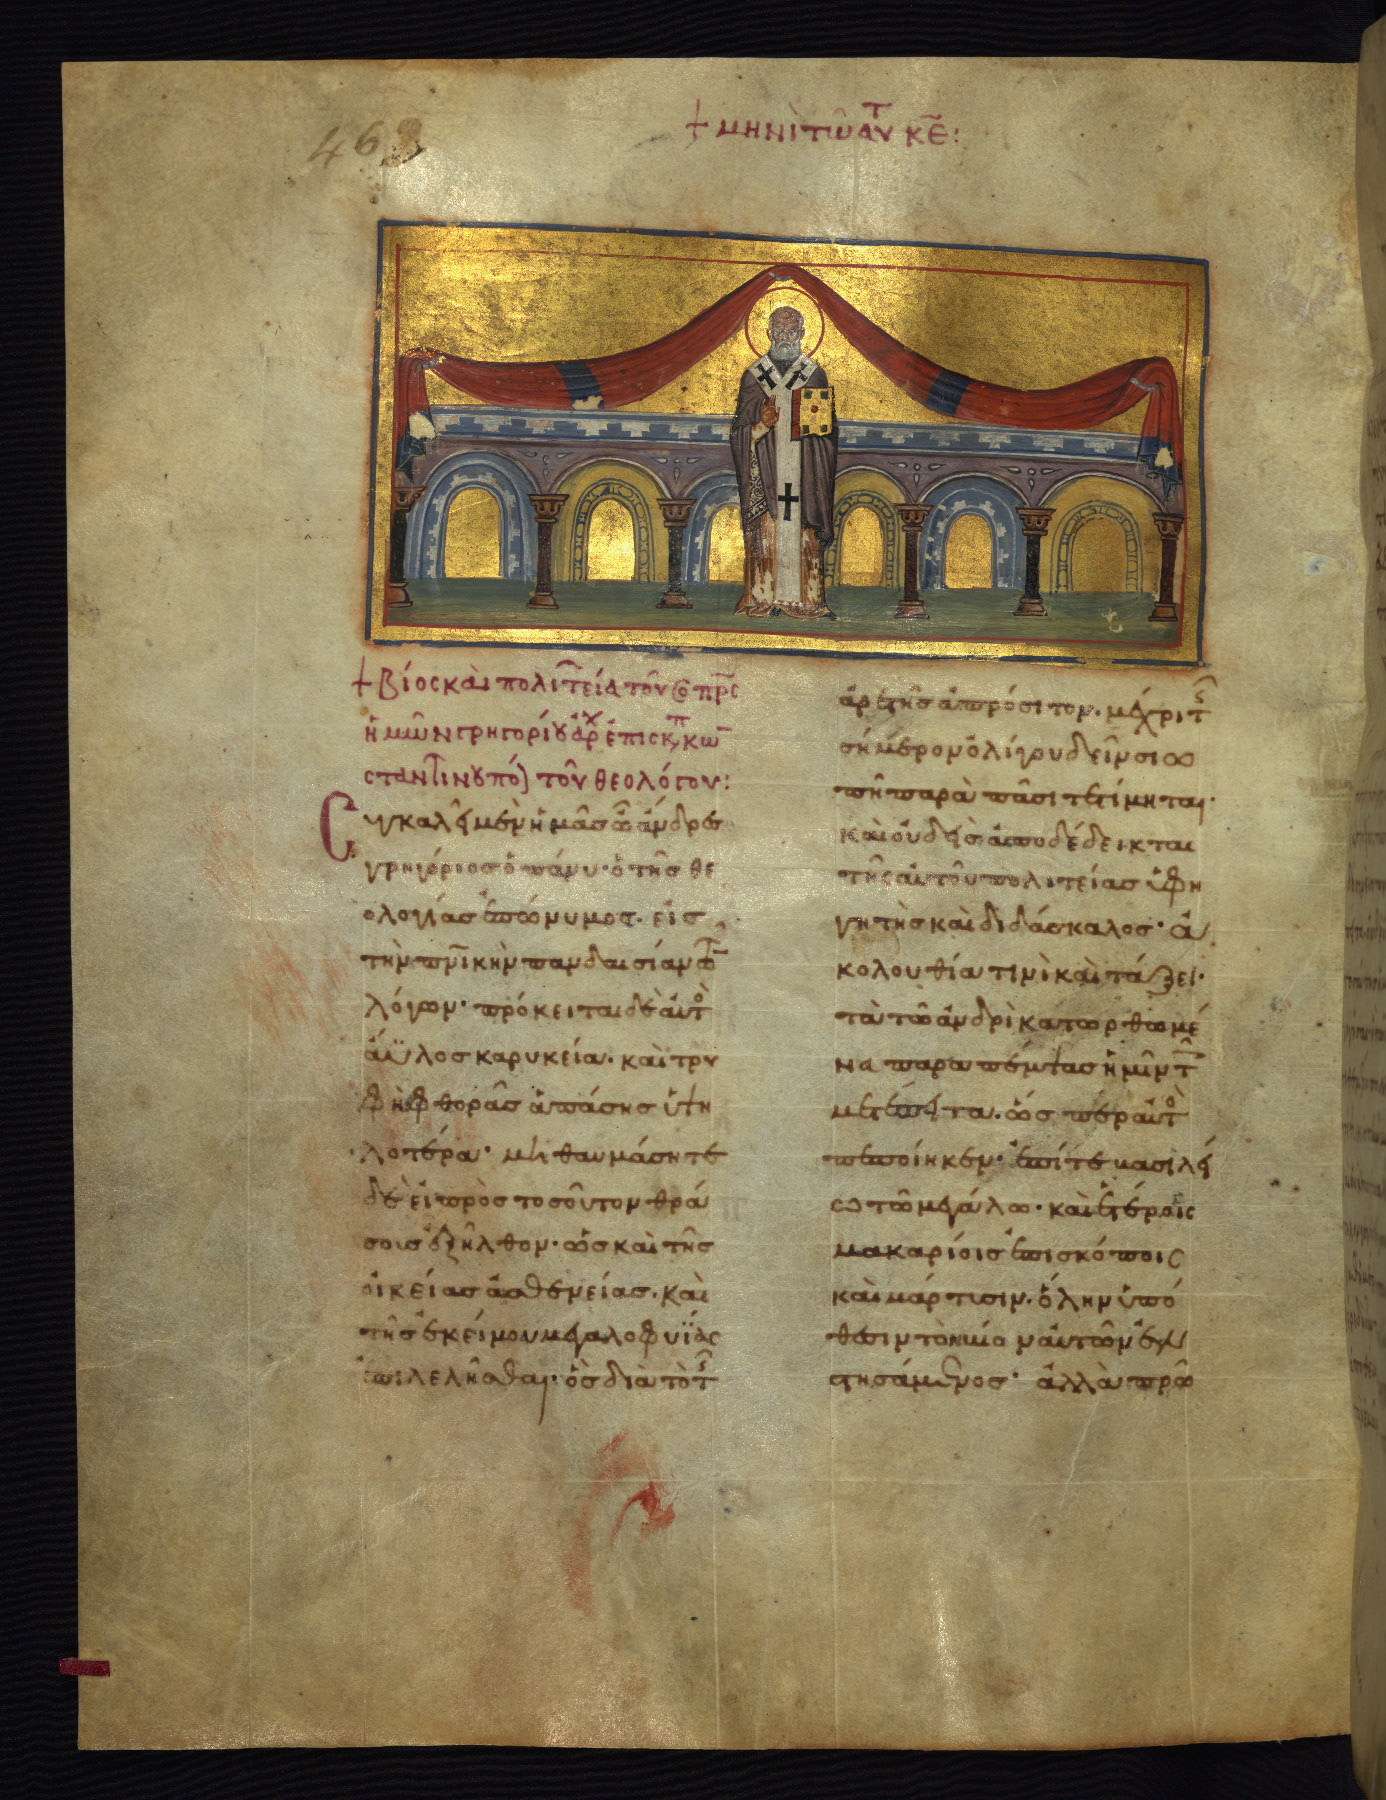 468
+ μηνὶ τῶ αυτ κε:
+ Βίος καὶ πολιτεία τοῦ πρς
ἡμῶν γρηγορίου ἀρχ ἐπισκπ κω
σταντινουπό τοῦ θεολόγου:
Συγκαλεῖ μὲν ἡμᾶς ὦ ἄνδρες
γρηγόριος ὁ πάνυ· ὁ τῆς θε
ολογίας ἐπώνυμος. εἰς
τὴν πνικὴν πανδαισίαν τῶν
λόγων· πρόκειται δὲ αὐτὸ
ἄϋλος καρυκεία. καὶ τρυ
φὴ φθορᾶς ἁπάσης ὑψη
λοτέρα· μὴ θαυμάσητε
δὲ εἰ πρὸς τοσοῦτον θρά
σους ἐξῆλθον· ὡς καὶ τῆς
οἰκείας ἀσθενείας. καὶ
τῆς ἐκείνου μεγαλοφυΐας
ἐπιλελῆσθαι· ὃς διὰ τὸ τῆς
ἀρετῆς ἀπρόσιτον. μέχρι τῆς
σήμερον ὀλίγου δεῖν σιω
πῆ παρὰ πᾶσι τετίμηται·
καὶ οὐδεὶς ἀποδέδεικται
τῆς αὐτοῦ πολιτείας ὑφη
γητὴς καὶ διδάσκαλος· ἀ
κολουθία τινὶ καὶ τάξει·
τὰ τῶ ἀνδρὶ κατωρθωμέ
να παραπέμψας ἡμῖν τοῖς
μετέπειτα. ὥσπερ αὐτὸ
πεποίηκεν· ἐπί τε βασιλεί
ω τῶ μεγάλω· καὶ ἑτέροις
μακαρίοις ἐπισκόποις
καὶ μάρτυσιν. ὅλην ὑπό
θεσιν τὸν βίον αὐτῶν ἐν
στησάμενος· ἀλλὰ πρῶ